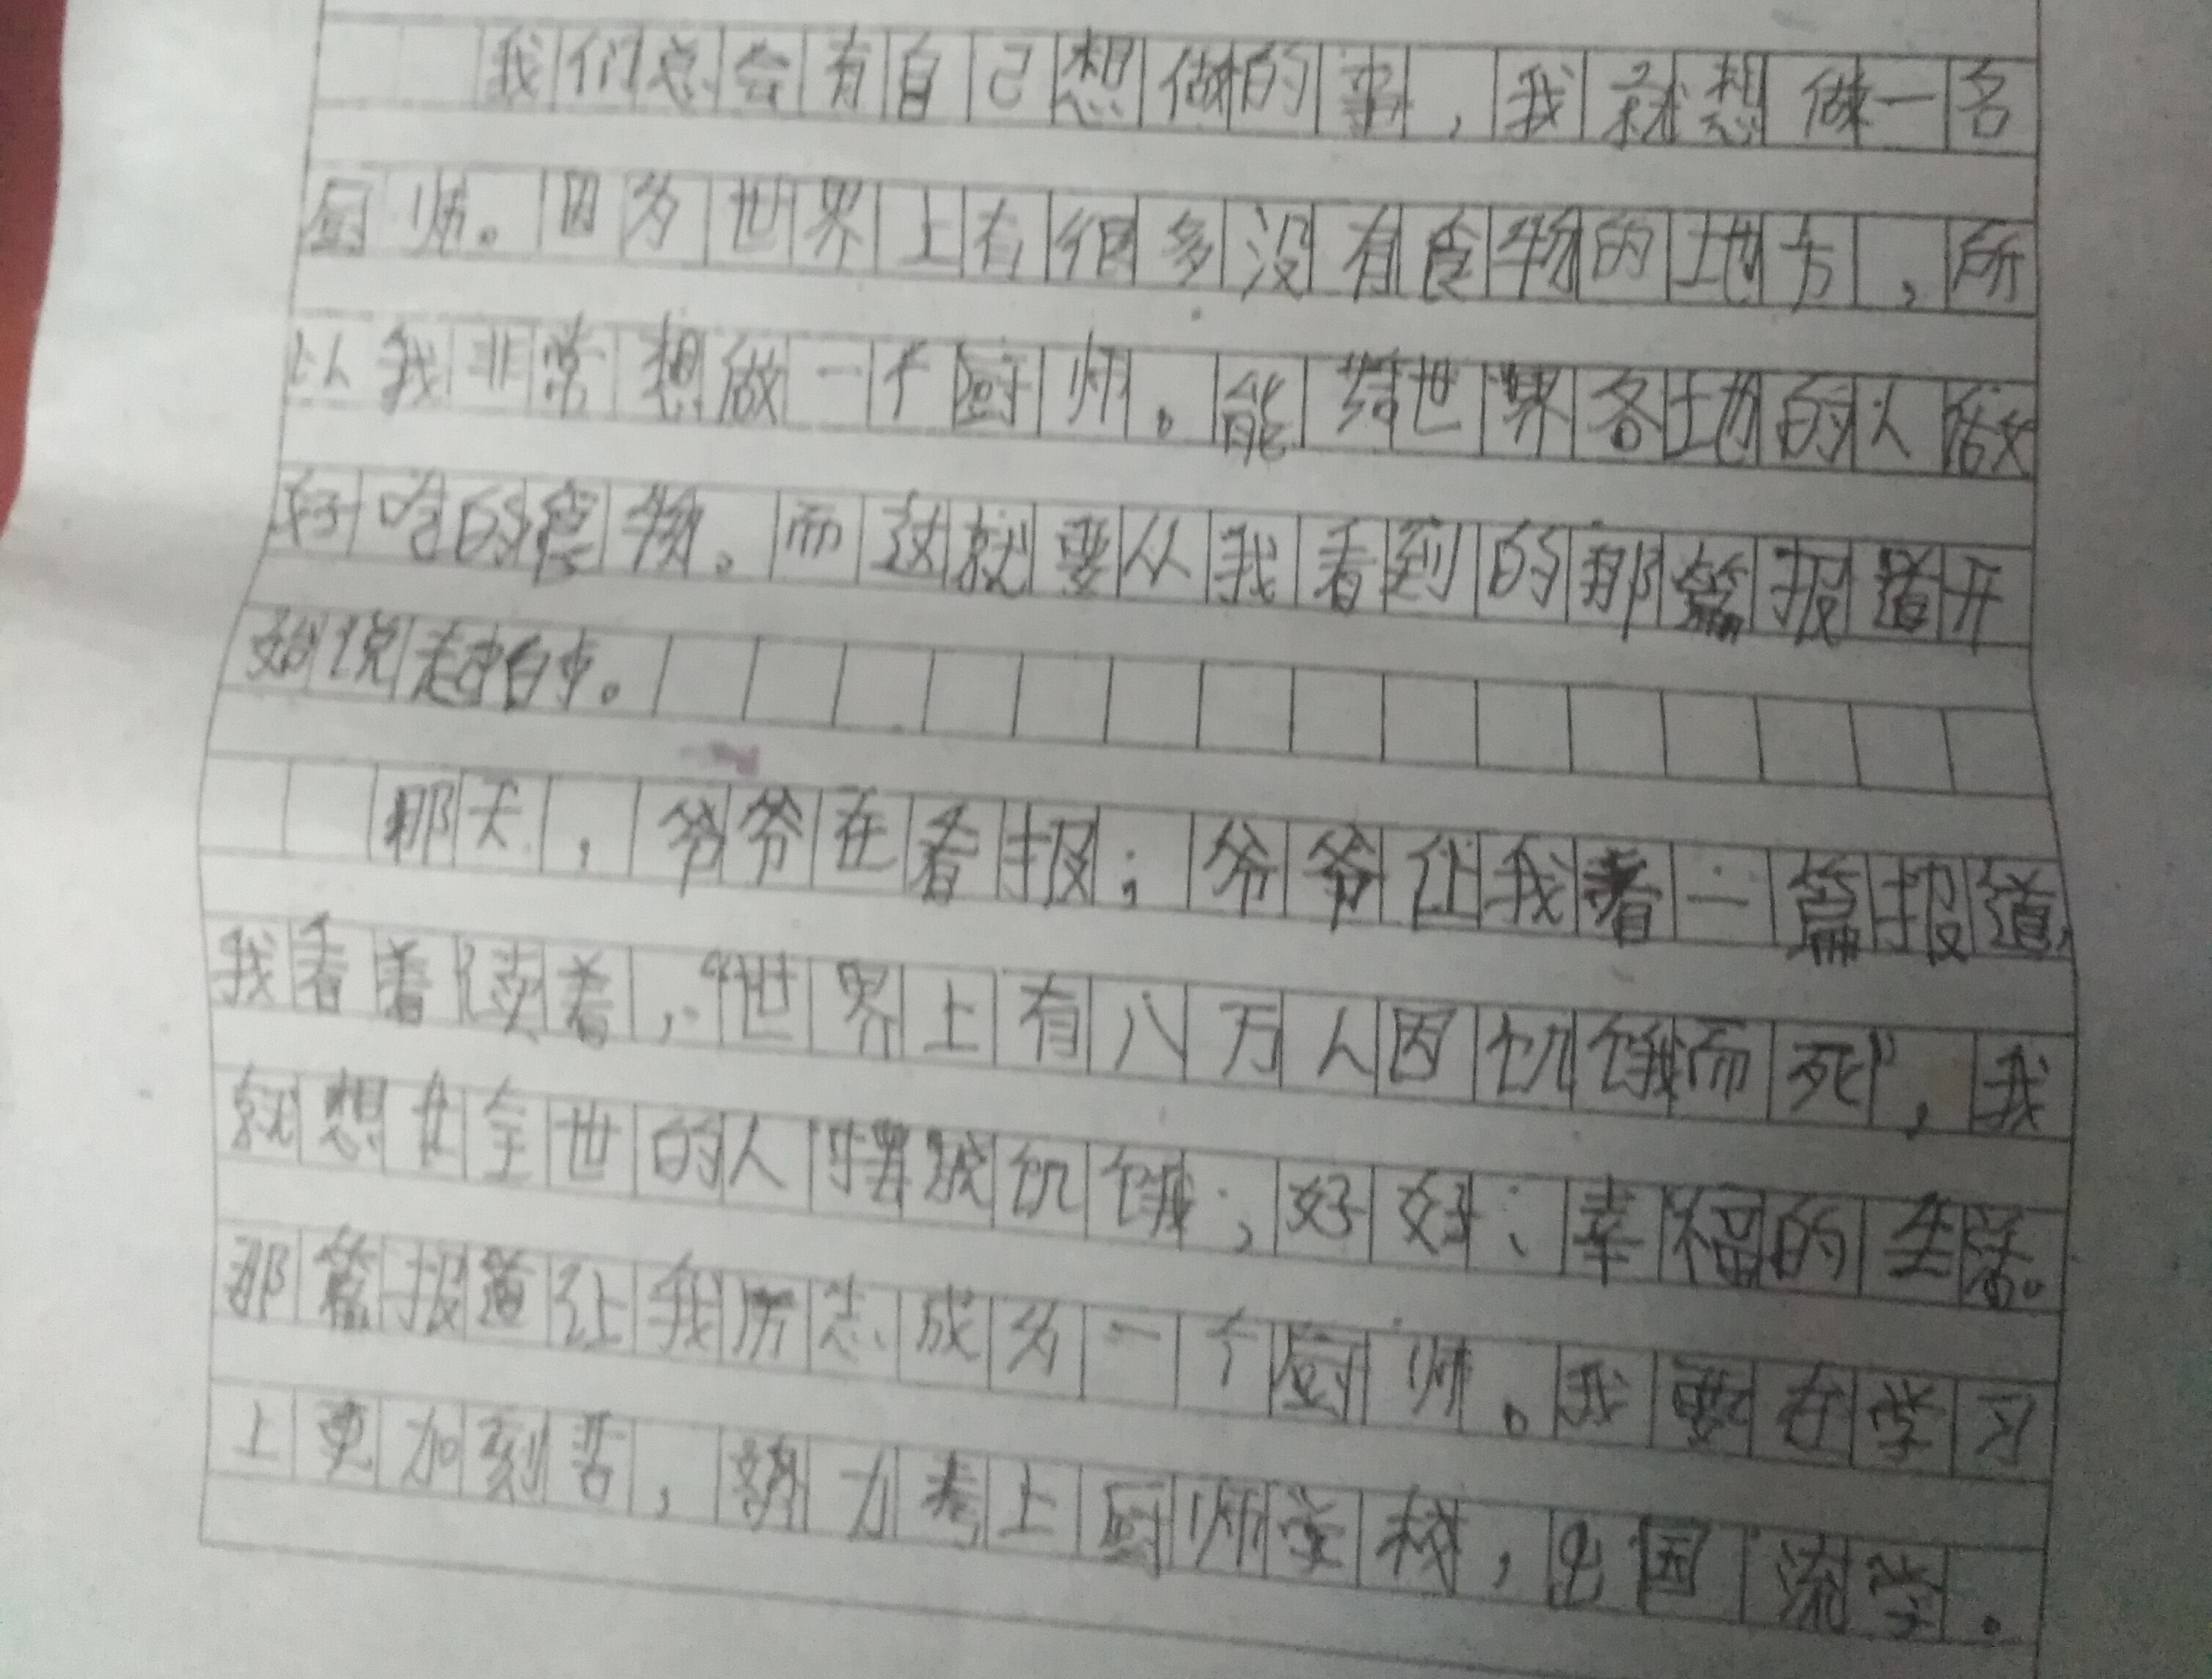 我们总会有自己想做的事,我就想做一名
厨师。因为世界上有很多没有食物的地方,所
以我非常想做一个厨师。能给世界各地的人做
好吃的食物。而这就要从我看到的那篇报道开
始说起。
那天,爷爷在看报;爷爷让我看一篇报道,
我看着读着,“世界上有八万人因饥饿而死”,我
就想让全世的人摆脱饥饿;好好、幸福的生活。
那篇报道让我厉志成为一个厨师。我要在学习
上更加刻苦,努力考上厨师学校,出国流学.